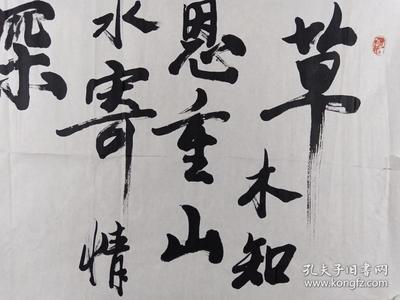 草木知
恩重山
水寄情
深
孔夫子旧书网
www.kongfz.com